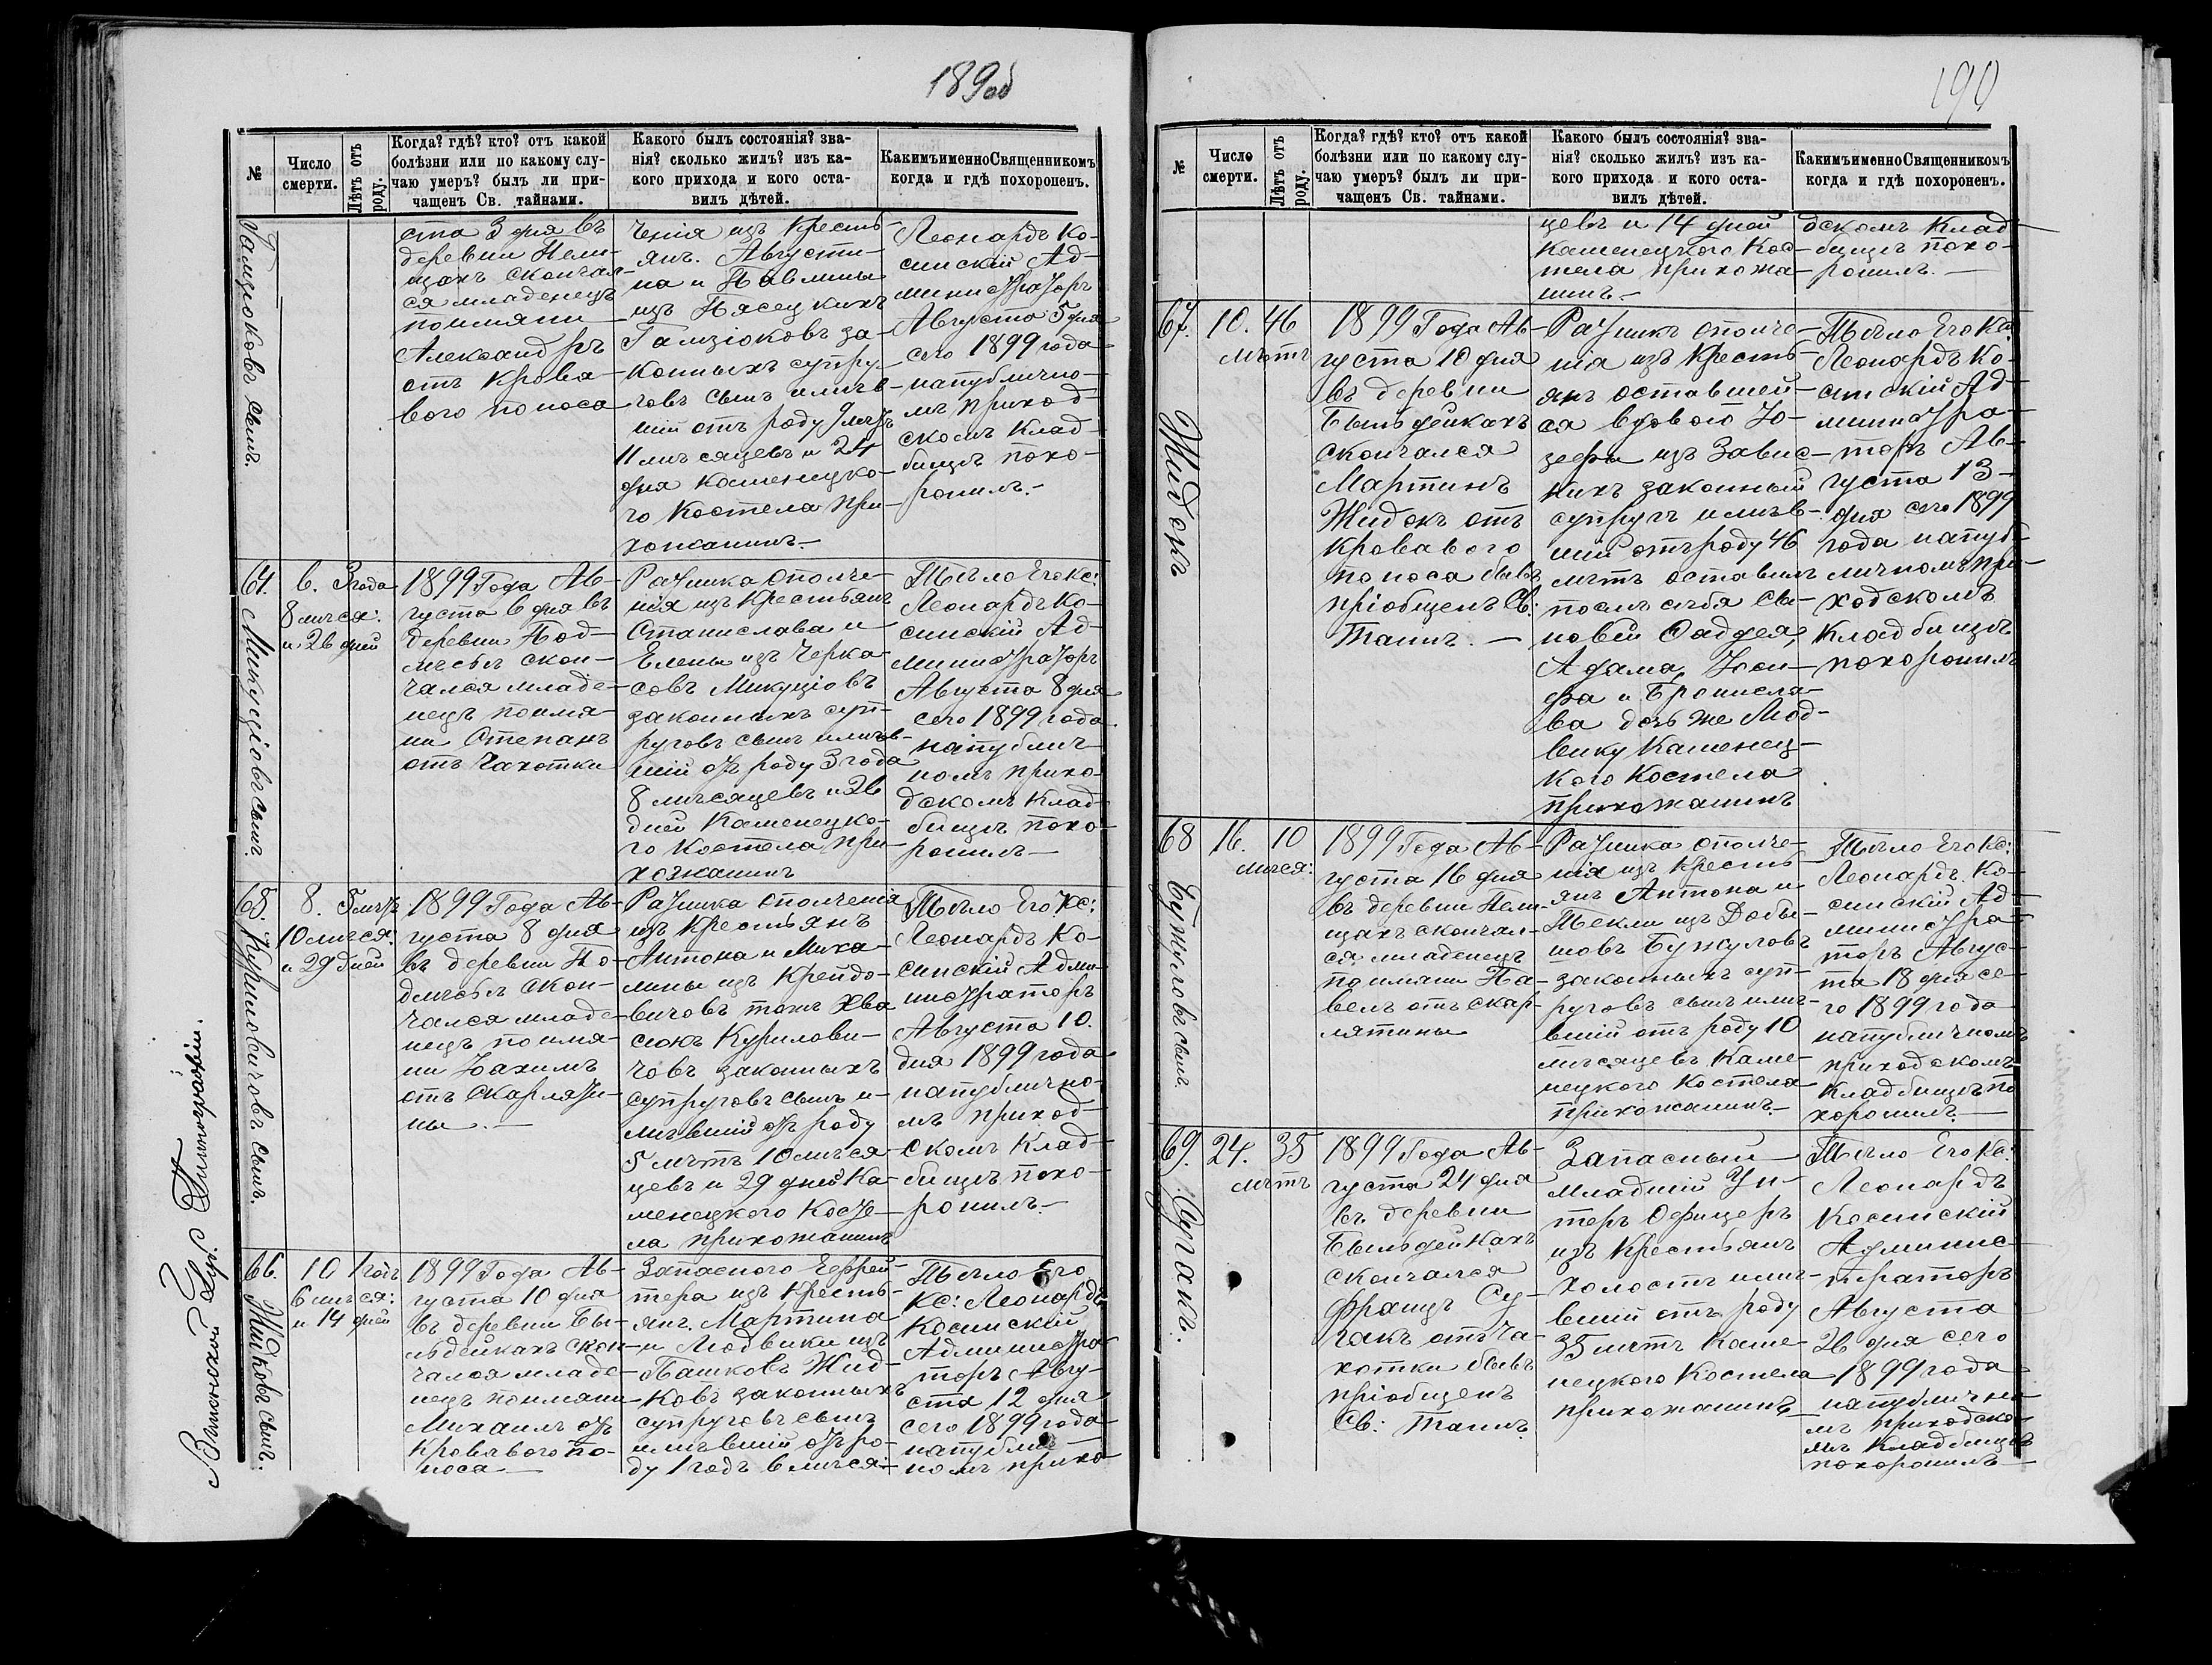 189 об
№
Число
смерти.
Лѣтъ отъ
роду.
Когда? гдѣ? кто? отъ какой
болѣзни или по какому слу-
чаю умеръ? былъ ли при-
чащенъ Св. тайнами.
Какого былъ состоянія? зва-
нія? сколько жилъ? изъ ка-
кого прихода и кого оста-
вилъ дѣтей.
Какимъ именно Священникомъ
когда и гдѣ похороненъ.
Гамзюковъ сынъ.
ста 3 дня въ
деревни Пели-
щахъ скончал-
ся младенецъ
поимяни
Александръ
отъ Крова-
вого поноса
ченія изъ Кресть-
янъ. Августи-
на и Павлины
изъ Пясецкихъ
Гамзюковъ за-
конныхъ супру-
говъ сынъ имѣв-
шій отъ роду 9 лѣтъ
11 мѣсяцевъ и 24
дня Каменецко-
го Костела при-
хожанинъ.-
Леонардъ Ко-
синскій Ад-
министраторъ
Августа 5 дня
сего 1899 года
напублично-
мъ приход-
скомъ Клад-
бищѣ похо-
ронилъ.-
64.
Микуціовъ сынъ.
6. 3 года
8 мѣся:
и 26 дней
1899 Года Ав-
густа 6 дня въ
деревни Под-
лѣсьѣ скон-
чался младе-
нецъ поимя-
ни Степанъ
отъ Чахотки
Ратника ополче-
нія изъ Крестьянъ
Станислава и
Елены изъ Черка-
совъ Микуціовъ
законныхъ суп-
руговъ сынъ имѣв-
шій отъ роду 3 года
8 мѣсяцевъ и 26
дней Каменецко-
го Костела при-
хожанинъ
Тѣло Его Кс:
Леонардъ Ко-
синскій Ад-
министраторъ
Августа 8 дня
сего 1899 года
напублич-
номъ прихо-
дскомъ Клад-
бищѣ похо-
ронилъ-
65.
Куриловичовъ сынъ.
8. 5 лѣтъ
10 мѣся:
и 29 дней
1899 Года Ав-
густа 8 дня
въ деревни По-
длѣсьѣ скон-
чался младе-
нецъ поимя-
ни Іахимъ
отъ Скарляти-
ны.-
Ратника ополченія
изъ Крестьянъ
Антона и Миха-
лины изъ Крейдо-
вичовъ тожъ Хва
сюкъ Курилови-
човъ законныхъ
супруговъ сынъ и-
мѣвшій отъ роду
5 лѣтъ 10 мѣся-
цевъ и 29 дней Ка-
менецкого Косте-
ла прихожанинъ
Тѣло Его Кс:
Леонардъ Ко-
синскій Адми-
нистраторъ
Августа 10.
дня 1899 года
напублично-
мъ приход-
скомъ Клад-
бищѣ похо-
ронилъ.-
66.
Жидковъ сынъ.
10 1 годъ
6 мѣся:
и 14 дней
1899 Года Ав-
густа 10 дня
въ деревни Бы-
льдейкахъ скон-
чался младе-
нецъ поимяни
Михаилъ отъ
Кровавого по-
носа-
Запасного Ефрей-
тера изъ Кресть-
янъ. Мартина
и Людвики изъ
Пашковъ Жид-
ковъ законныхъ
супруговъ сынъ
имѣвшій отъ ро-
ду 1 годъ 6 мѣся-
Тѣло Его
Кс: Леонардъ
Косинскій
Администра
торъ Авгу-
ста 12 дня
сего 1899 года
напублич-
номъ прихо
190
№
Число
смерти.
Лѣтъ отъ
роду.
Когда? гдѣ? кто? отъ какой
болѣзни или по какому слу-
чаю умеръ? былъ ли при-
чащенъ Св. тайнами.
Какого былъ состоянія? зва-
нія? сколько жилъ? изъ ка-
кого прихода и кого оста-
вилъ дѣтей.
Какимъ именно Священникомъ
когда и гдѣ похороненъ.
цевъ и 14 дней
Каменецкого Кос-
тела прихожа-
нинъ.-
дскомъ Клад-
бищѣ похо-
ронилъ.-
67.
Жидокъ
10. 46
лѣтъ
1899 Года Ав-
густа 10 дня
въ деревни
Быльдейкахъ
скончался
Мартинъ
Жидокъ отъ
Кровавого
поноса бывъ
пріобщенъ Св:
Таинъ.-
Ратникъ ополче-
нія изъ Кресть-
янъ оставшей-
ся вдовою Іо-
зефы изъ Завис-
кихъ законный
супругъ имѣв-
шій отъ роду 46
лѣтъ оставилъ
послѣ себя Сы-
новей Фаддея,
Адама, Іоси-
фа и Бронисла-
ва дочь же Люд-
вику Каменец-
кого Костела
прихожанинъ
Тѣло Его Кс:
Леонардъ Ко-
синскій Ад-
министра-
торъ Ав-
густа 13-
дня сего 1899
года напуб-
личномъ при-
ходскомъ
Кладбищѣ
похоронилъ
68
Бужуловъ сынъ.
16. 10
мѣся:
1899 Года Ав-
густа 16 дня
въ деревни Пели-
щахъ скончал-
ся младенецъ
поимяни Па-
велъ отъ скар-
лятины
Ратника ополче-
нія изъ Кресть-
янъ Антона и
Теклы изъ Добы-
шовъ Бужуловъ
законныхъ суп-
руговъ сынъ имѣ-
вшій отъ роду 10
мѣсяцевъ Каме-
нецкого Костела
прихожанинъ.-
Тѣло Его Кс:
Леонардъ Ко-
синскій Ад-
министра-
торъ Авгус-
та 18 дня се-
го 1899 года
напубличномъ
приходскомъ
Кладбищѣ по
хоронилъ.-
69.
Сугакъ.
24. 35
лѣтъ
1899 Года Ав-
густа 24 дня
въ деревни
Быльдейкахъ
скончался
Францъ Су-
гакъ отъ Ча-
хотки бывъ
пріобщенъ
Св: Таинъ.
Запасный
младшій Ун-
теръ Офицеръ
изъ Крестьянъ
холостъ имѣ-
вшій отъ роду
35 лѣтъ Каме-
нецкого Костела
прихожанинъ
Тѣло Его Кс:
Леонардъ
Косинскій
Админис-
траторъ
Августа
26 дня сего
1899 года
напублично
мъ приходско-
мъ Кладбищѣ
похоронилъ